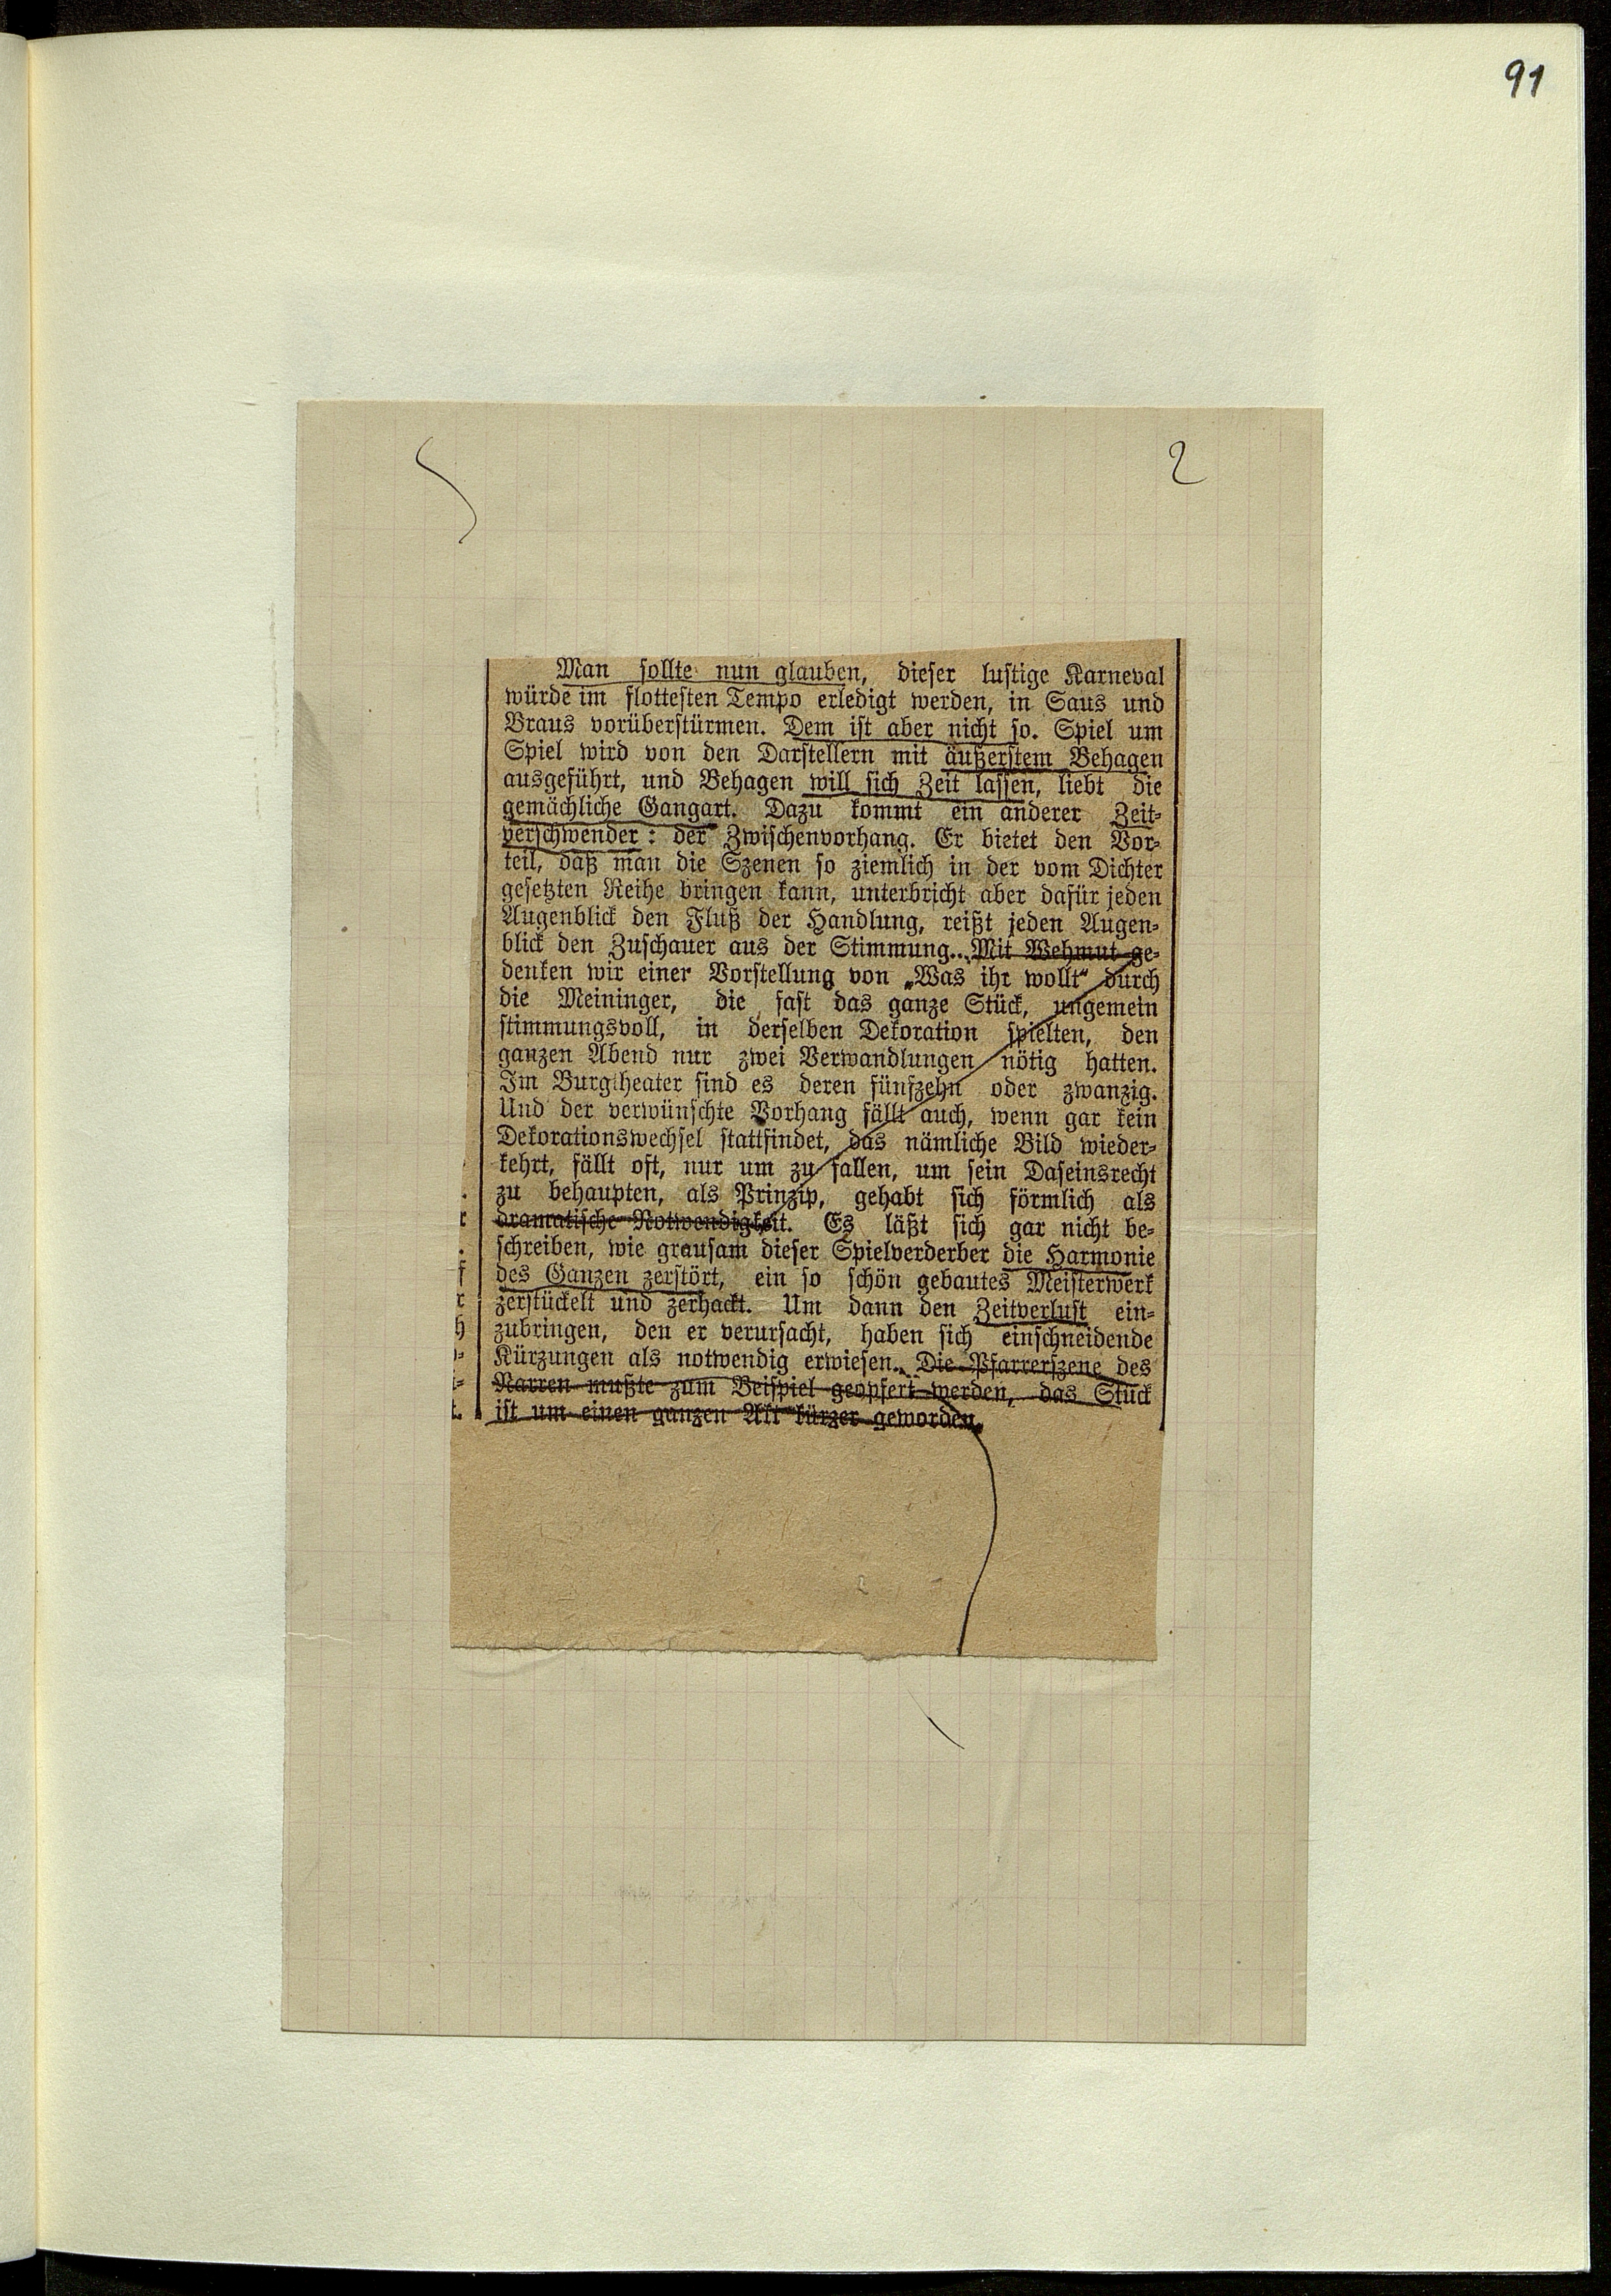 91
2
Man sollte nun glauben, dieser lustige Karneval
würde im flottesten Tempo erledigt werden, in Saus und
Braus vorüberstürmen. Dem ist aber nicht so. Spiel um
Spiel wird von den Darstellern mit äußerstem Behagen
ausgeführt, und Behagen will sich Zeit lassen, liebt die
gemächliche Gangart. Dazu kommt ein anderer Zeit-
verschwender: der Zwischenvorhang. Er bietet den Vor-
teil, daß man die Szenen so ziemlich in der vom Dichter
gesetzten Reihe bringen kann, unterbricht aber dafür jeden
Augenblick den Fluß der Handlung, reißt jeden Augen-
blick den Zuschauer aus der Stimmung. Mit Wehmut ge-
denken wir einer Vorstellung von „Was ihr wollt“ durch
die Meininger, die fast das ganze Stück, ungemein
stimmungsvoll, in derselben Dekoration spielten, den
ganzen Abend nur zwei Verwandlungen nötig hatten.
Im Burgtheater sind es deren fünfzehn oder zwanzig.
Und der verwünschte Vorhang fällt auch, wenn gar kein
Dekorationswechsel stattfindet, das nämliche Bild wieder-
kehrt, fällt oft, nur um zu fallen, um sein Daseinsrecht
zu behaupten, als Prinzip, gehabt sich förmlich als
dramatische Notwendigkeit. Es läßt sich gar nicht be-
schreiben, wie grausam dieser Spielverderber die Harmonie
des Ganzen zerstört, ein so schön gebautes Meisterwerk
zerstückelt und zerhackt. Um dann den Zeitverlust ein-
zubringen, den er verursacht, haben sich einschneidende
Kürzungen als notwendig erwiesen. Die Pfarrerszene des
Narren mußte zum Beispiel geopfert werden, das Stück
ist um einen ganzen Akt kürzer geworden.